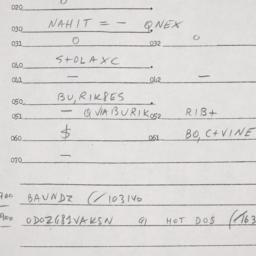 020 0
030 NAHIT = - QNEX
031 0 032 0
040 S+OLAXC
041 - 042 -
050 BU,RIKPES
051 - QVIABURIK 052 RIB+
060 $ 061 BO,C+VINE
070 -
900 BAUNDZ (/103140
900 ODOZGB1VAKSN G) HOT DOS (/163